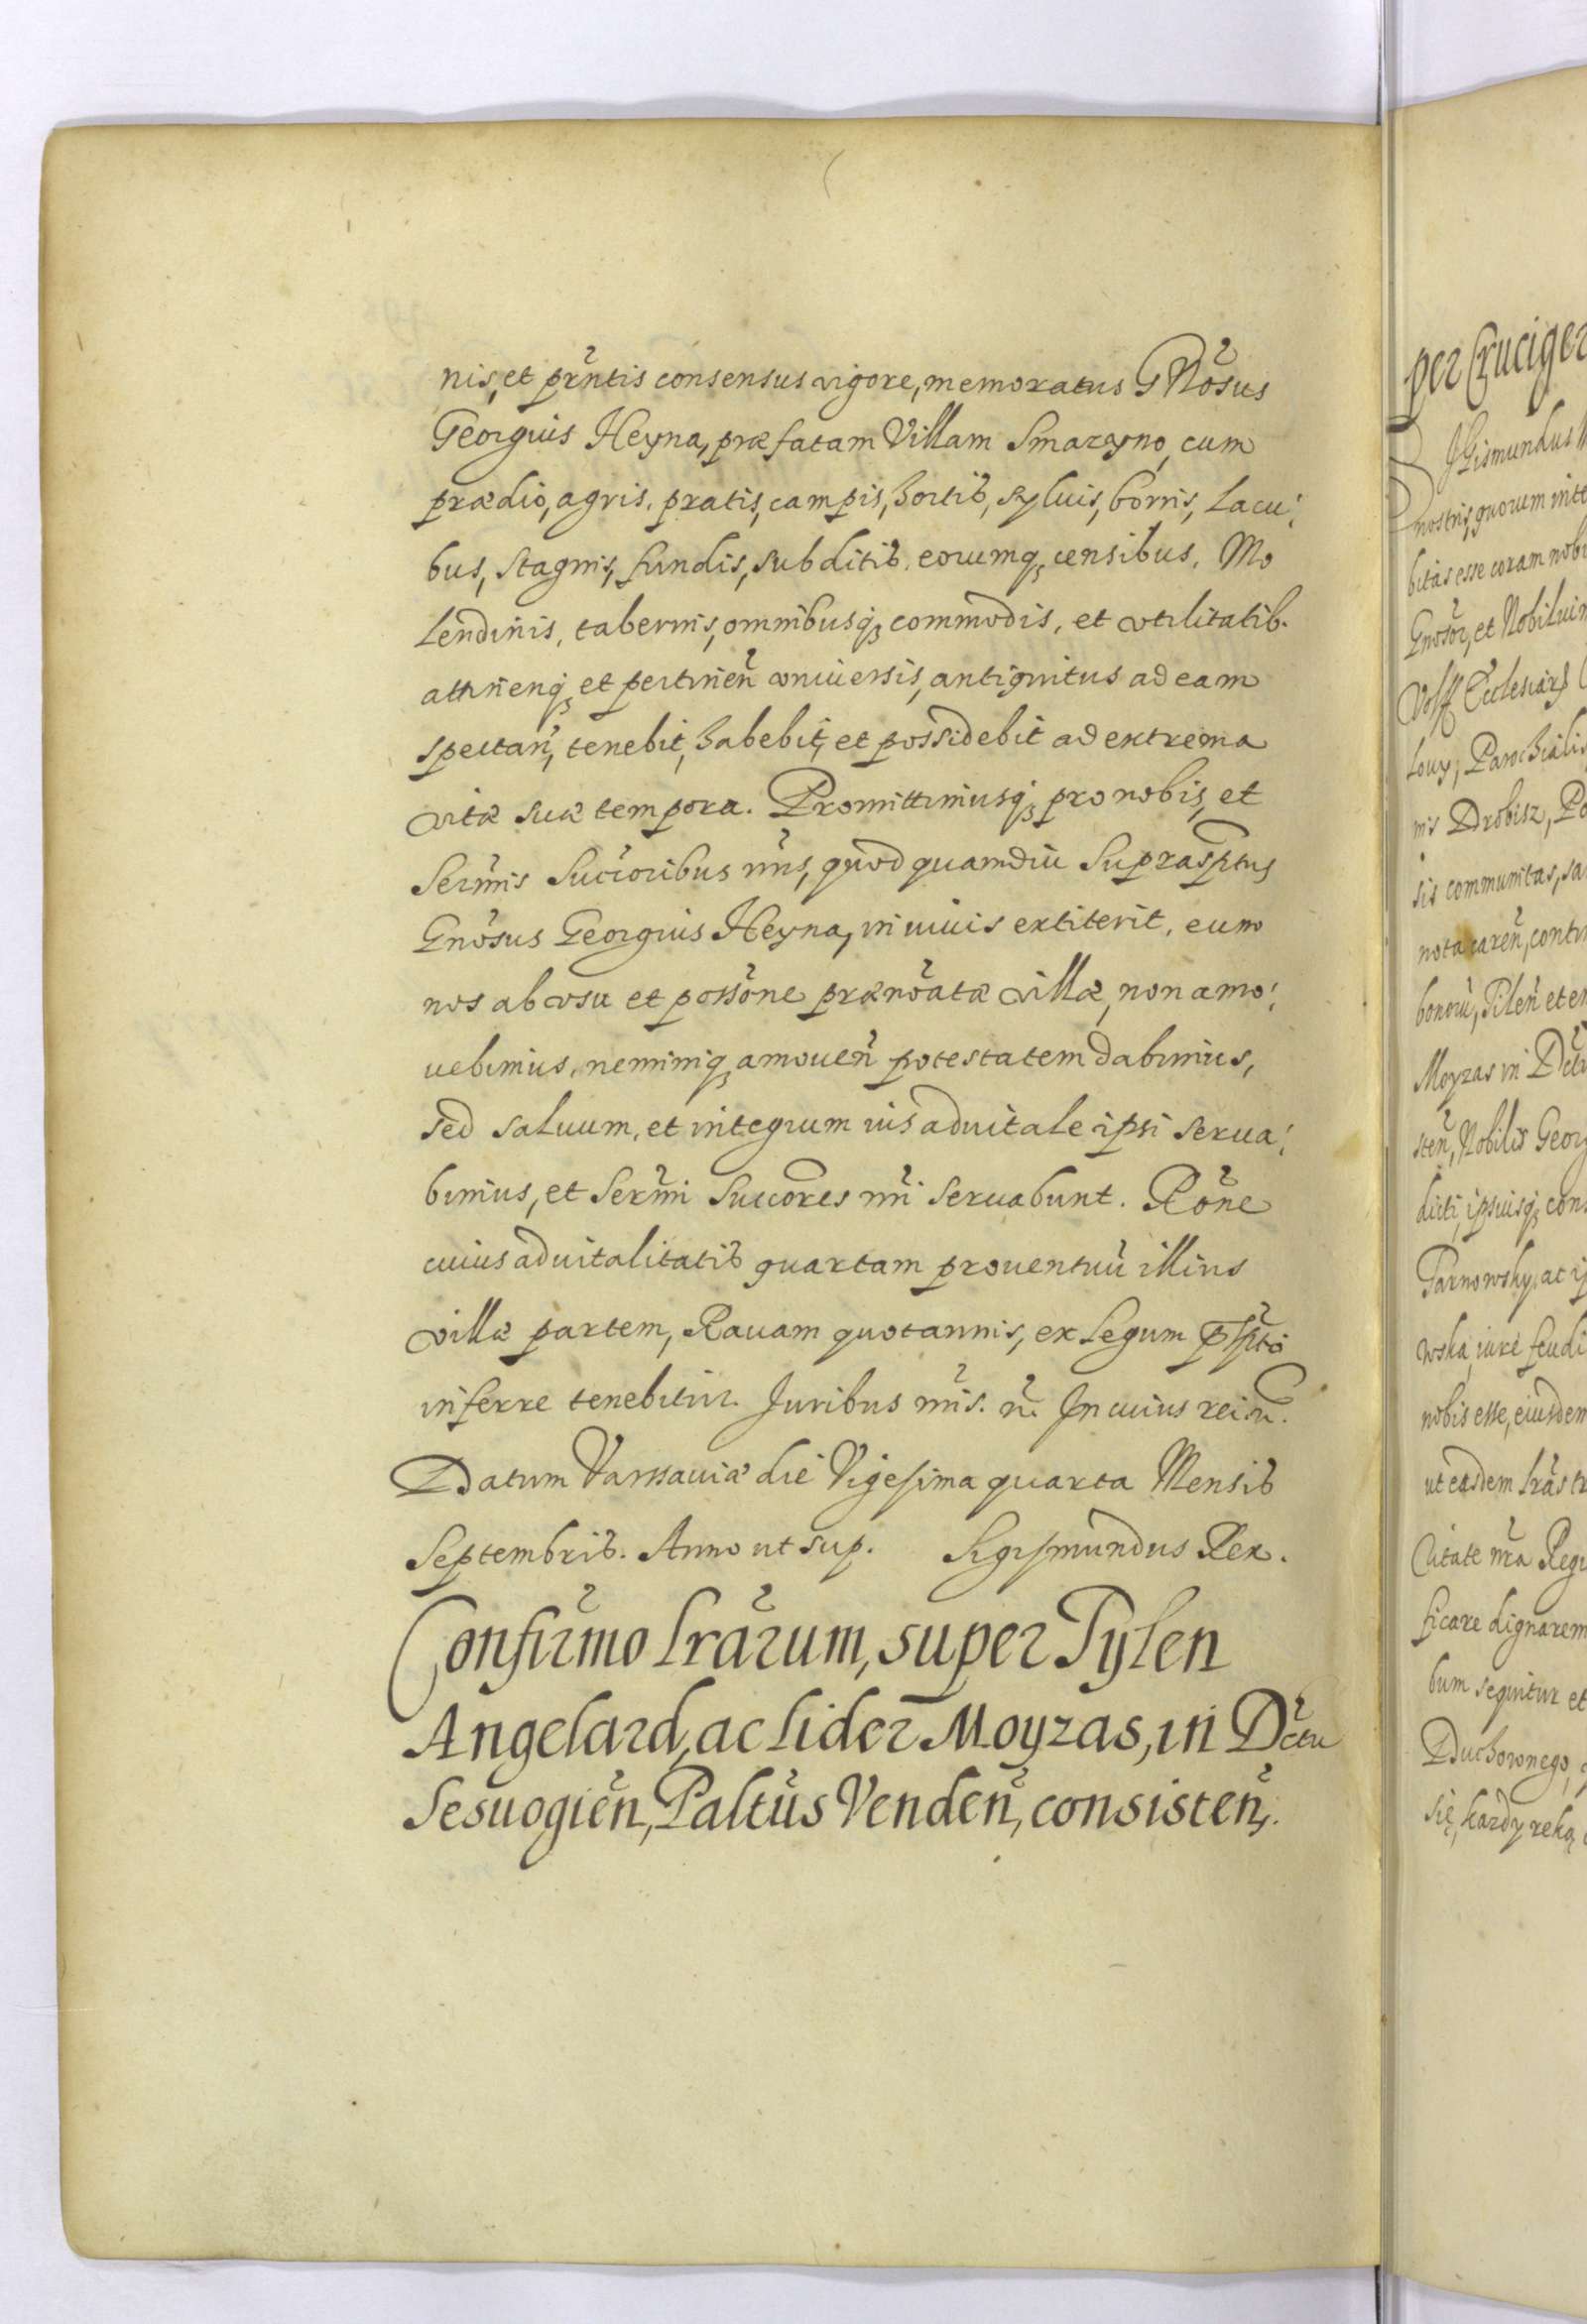 nis, et prñtis consensus vigore, memoratus GNõsus
Georgius Heyna, præfatam Villam Smarzyno, cum
prædio, agris, pratis, campis, hortis, syluis, borris, Lacu:
bus, stagnis, fundis, subditis, eorumq, censibus, Mo
lendinis, tabernis, omnibusq, commodis, et vtilitatib.
attinenq, et pertineñ vniuersis, antiquitus ad eam
spectañ, tenebit, habebit, et possidebit ad extrema
vitæ suæ tempora. Promittimusq, pro nobis, et
Serm̃is Succ̃oribus ñris, quod quamdiu Suprasptus
Gnõsus Georgius Heyna, in viuis extiterit, eum
nos ab vsu et possõne prænõatæ villæ, non amo:
uebimus, neminiq, amoueñ potestatem dabimus,
sed saluum, et integrum ius aduitale ipsi serua:
bimus, et Serm̃i Succores ñri seruabunt. Rõne
cuius aduitalitatis quartam prouentuũ illius
villæ partem, Rauam quotannis, ex Legum pŝpto
inferre tenebitur. Juribus ñris. ñ. In cuius rei ñ.
Datum Varssauiæ die Vigesima quarta Mensis
Septembris. Anno ut sup. Sigismundus Rex.
Confirm̃o Lrãrum, super Tylen
Angelard, ac Lider Moyzas, in Dc̃tu
Sesuogieñ, Palt̃us Vendeñ, consisteñ.
per Cruciger
SIgismundus
nostris, quorum
bitas esse coram nobi
Gnosor, et Nobilium
Volff Ecclesiars
Loux, Parochialis
nis Drobisz, Po
sis communitas, sa
nota careñ, contin
bonorũ, Tileñ et
Moyzas in Dc̃tu
steñ, Nobilis Geor
dicti, ipsiusq, cons
Tarnowsky, ac ip
wska, iure feudi
nobis esse, eiusdem
ut easdem Lrãs
ñra Regi
ficare dignarem
bum sequitur et
Duchownego,
się, kazdy reką